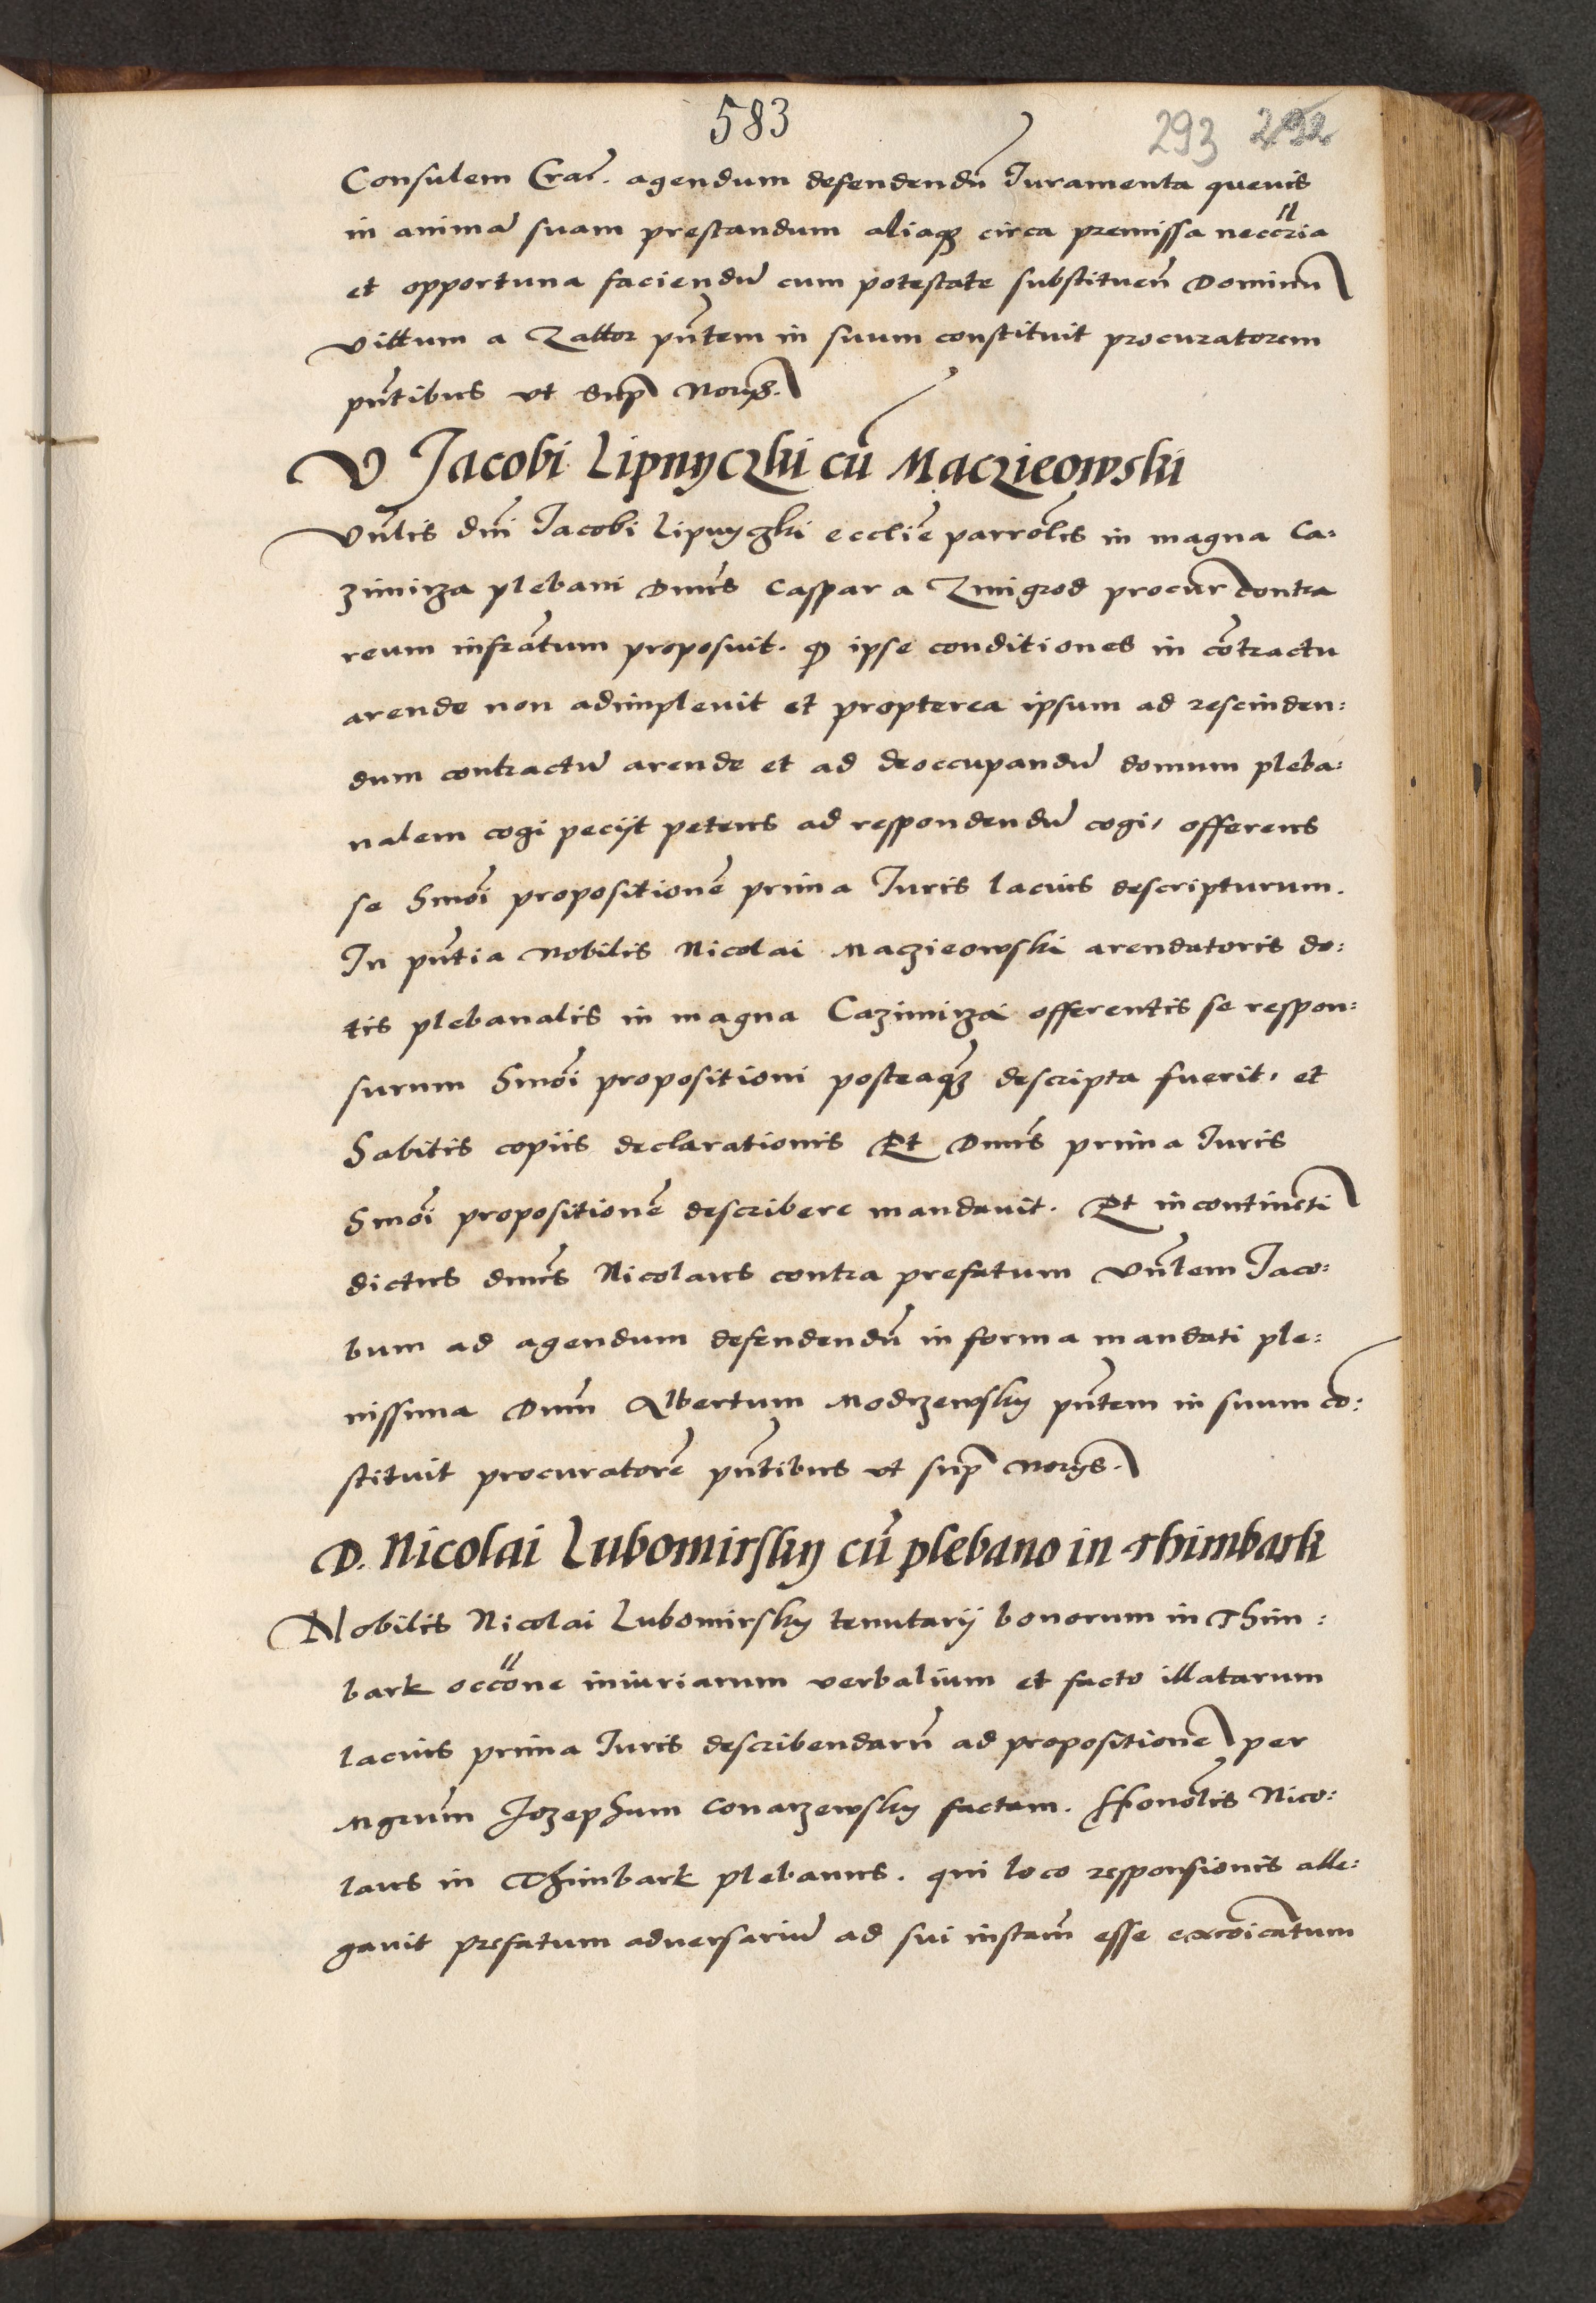 583
293 292
Consulem Crac. agendum defendendū Juramenta quevis
in animā suam prestandum aliaqꝫ circa premissa neccria
et opportuna faciendū cum potestate substituen̄ Dominū
Vittum a Zattor pn̄tem in suum constituit procuratorem
pn̄tibus vt sup̄ Norijs.
V Jacobi Lipnyczki cū Maczieowski
Vn̄lis dn̄i Jacobi Lipnyczki eccliē parrolis in magna Ca:
zimirza plebani Dnus Caspar a Zmigrod procur contra
reum infrātum proposuit. ꝙ ipse conditiones in cōtractu
arende non adimplevit et propterea ipsum ad rescinden:
dum contractū arende et ad deoccupandū domum pleba:
nalem cogi pecijt petens ad respondendū cogi, offerens
se hmōi propositionē prima Juris lacius descripturum.
In pn̄tia Nobilis Nicolai Maczieowski arendatoris do:
tis plebanalis in magna Cazimirza offerentis se respon:
surum hmōi propositioni posteaqꝫ descripta fuerit, et
habitis copiis declarationis Et Dnus prima Juris
hmōi propositionē describere mandavit. Et incontinēti
dictus dnus Nicolaus contra prefatum Vn̄lem Jaco:
bum ad agendum defendendū in forma mandati ple:
nissima Dnum Albertum Modrzewsky pn̄tem in suum cō:
stituit procuratorē pn̄tibus vt sup̄ Norijs.
D. Nicolai Lubomirsky cū plebano in Thimbark
Nobilis Nicolai Lubomirsky tenutarij bonorum in Thim:
bark occōne iniuriarum verbalium et facto illatarum
lacius prima Juris describendarū ad propositionē per
Mgrum Jozephum Conarzewsky factam. Honolis Nico:
laus in Thimbark plebanus. qui loco responsionis alle:
gavit prefatum adversariū ad sui instam̄ esse excōicatum